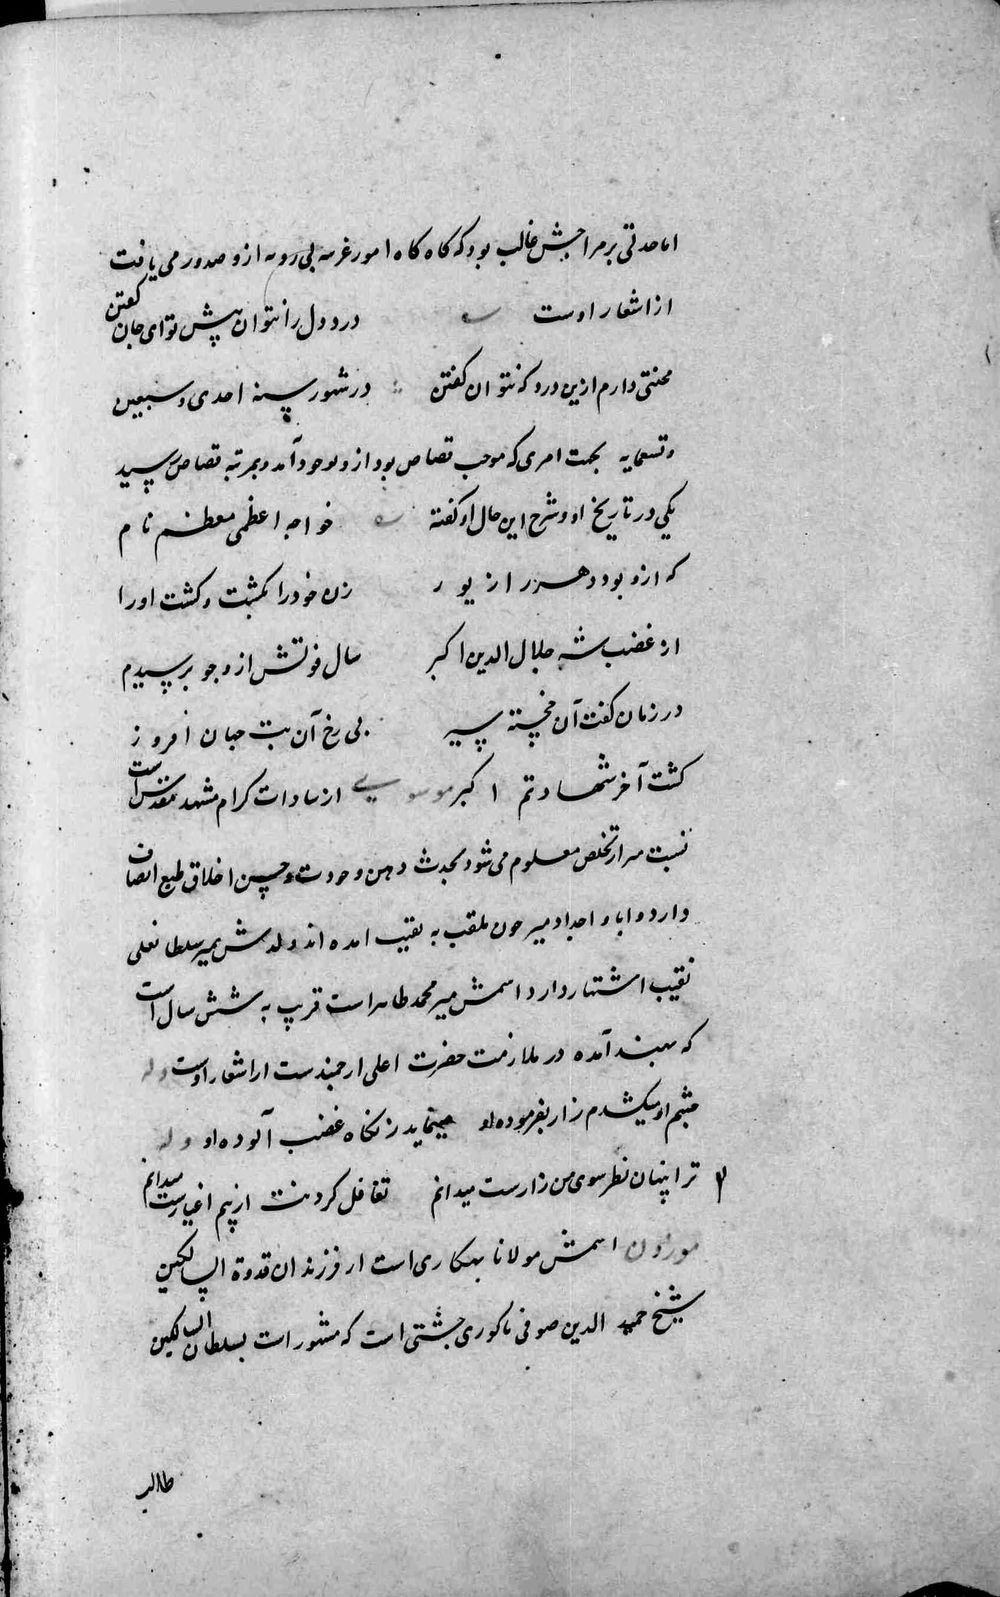 اما حدتی بر مزاجش غالب بود که کاه کاه امور غریبه بی رویه ازو صدور می یافت
از اشعار اوست درد دل را نتوان پیش تو ای جان کفتن
محنتی دارم ازین درد که نتوان کفتن در شهور سنه احدی و سبعین
و تسعمایه بجهت امری که موجب قصاص بود ازو بوجود آمد و بمرتبه قصاص رسید
یکی در تاریخ او و شرح این حال او کفته خواجه اعظمی معظم نام
که ازو بود دهر را زیور زن خود را بکشت و کشت او را
از غضب شه جلال الدین اکبر سال فوتش ازو چو پرسیدم
در زمان کفت آن خجسته سیر بی رخ آن بت جهان افروز
کشت آخر شهادتم اکبر موسوی از سادات کرام مشهد مقدس است
نسبت میر از تخلص معلوم می شود بحدث ذهن و جودت و حسن اخلاق طبع اتصاف
دارد و ابا و اجداد میر چون ملقب به نقیب امده اند ولدش میر سلطانعلی
نقیب اشتهار دارد اسمش میر محمد طاهر است قریب به شش سال است
که بهند آمده در ملازمت حضرت اعلی ارجمندست از اشعار اوست وله
چشم او میکشدم زار بفرموده او مینماید ز نکاه غضب آلوده او وله
ترا پنهان نظر سوی من زارست میدانم تغافل کردنت از بیم اغیارست میدانم
موزون اسمش مولانا بهکاری است از فرزندان قدوة السالکین
شیخ حمید الدین صوفی ناکوری چشتی است که مشهور است بسلطان السالکین